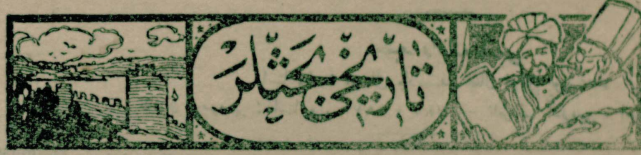 تاريخى بحثلر